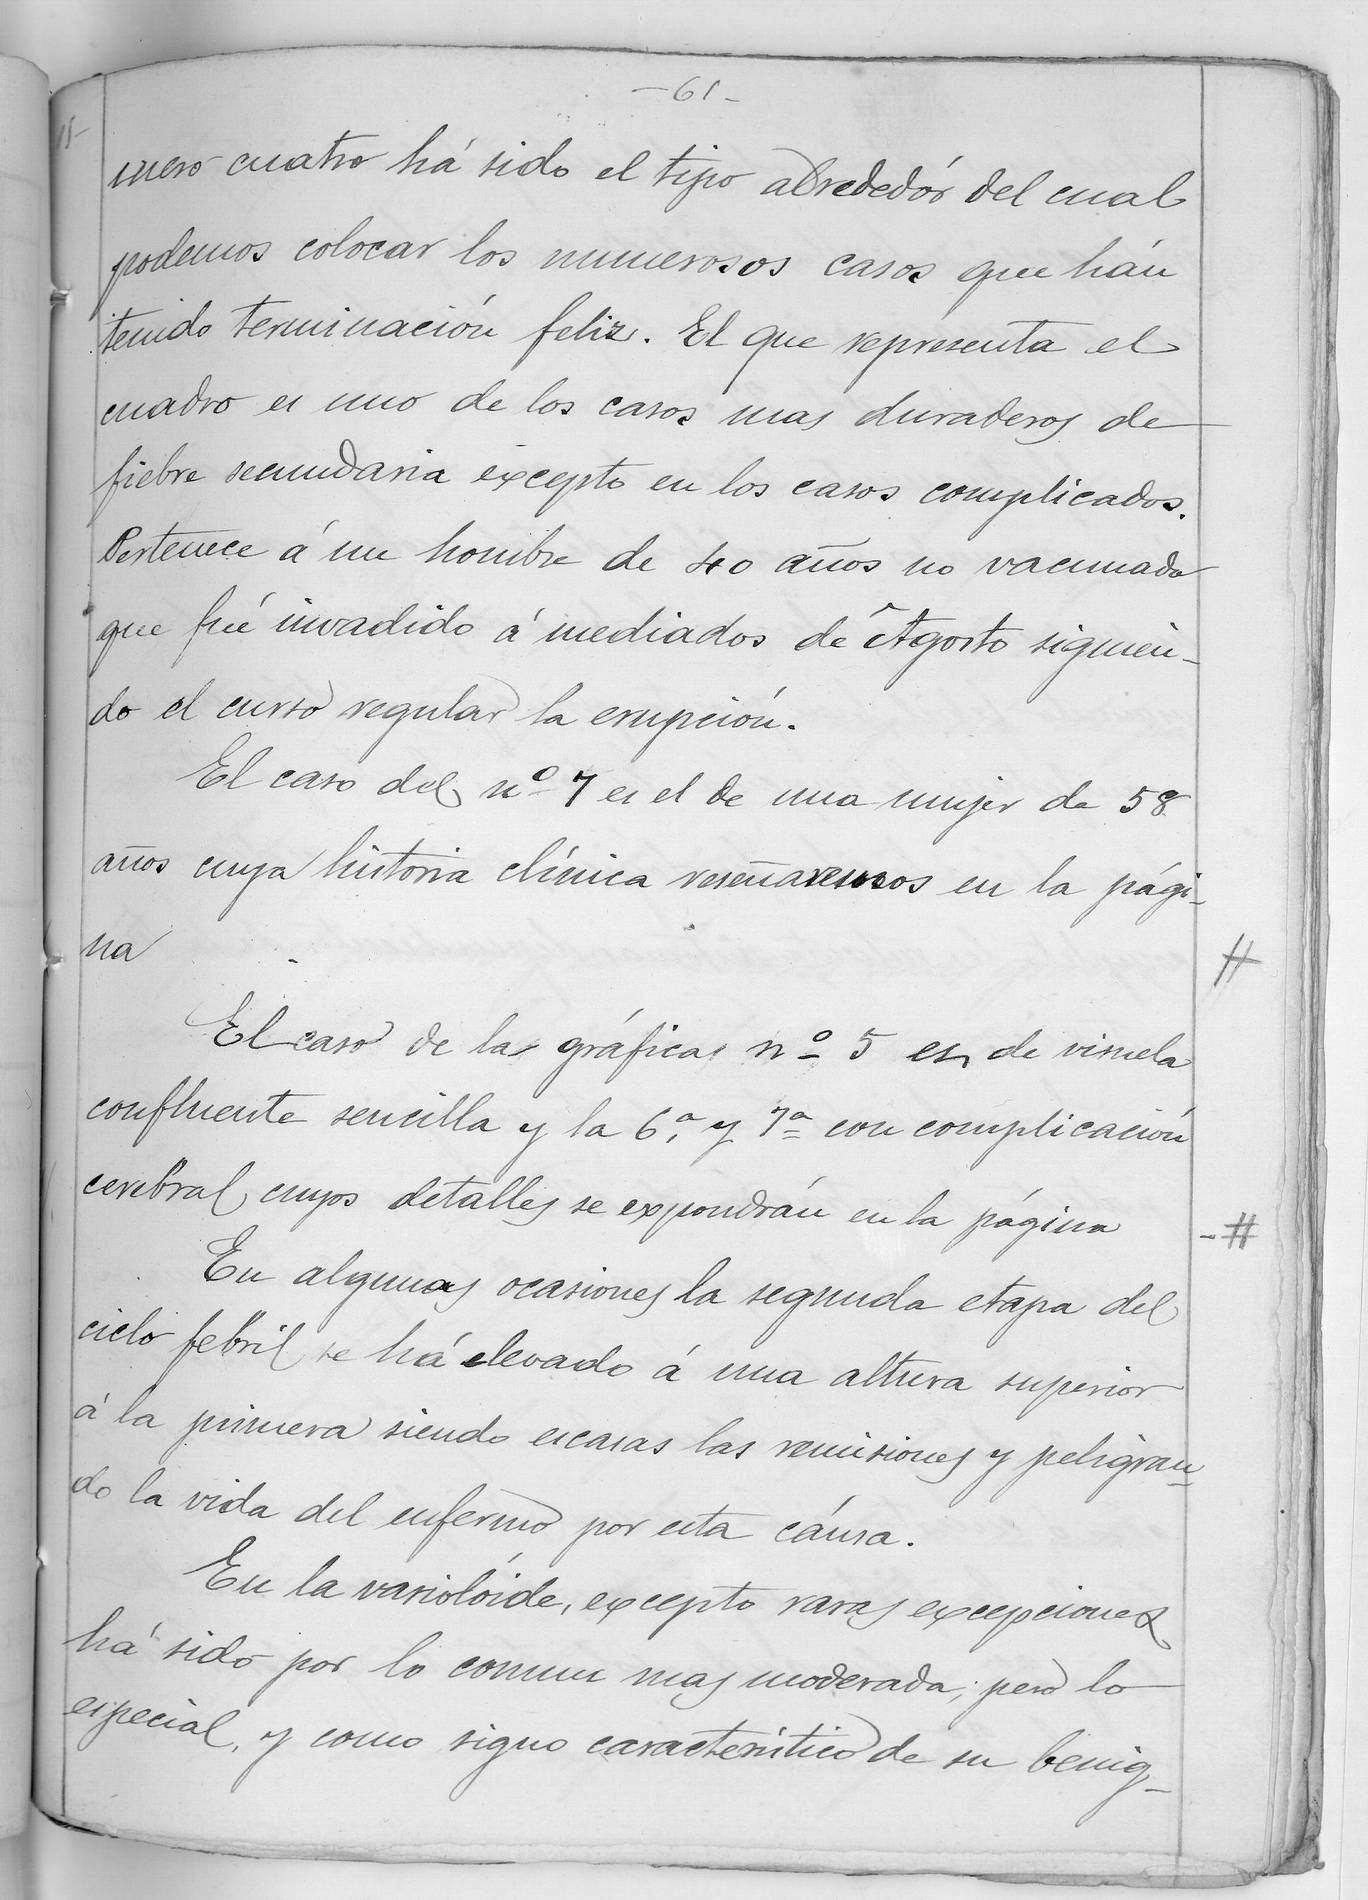 -61-
mero cuatro há sido el tipo alrededór del cual
podemos colocar los numerosos casos que hán
tenido terminación feliz. El que representa el
cuadro es uno de los casos mas duraderos de
fiebre secundaria excepto en los casos complicados.
Pertenece á un hombre de 40 años no vacunado
que fué invadido á mediados de Agosto siguien-
do el curso regular la erupción.
El caso del nº 7 es el de una mujer de 58
años cuya historia clínica reseñaremos en la pági-
na
#
El caso de la gráficas nº 5 es de viruela
confluente sencilla y la 6ª y 7ª con complicación
cerebral, cuyos detalles se expondrán en la página
-#
En algunas ocasiones la segunda etapa del
ciclo febril se há elevado á una altura superior
á la primera siendo escasas las remisiones y peligran-
do la vida del enfermo por esta cáusa.
En la variolóide, excepto raras excepciones
há sido por lo comun mas moderada, pero lo
especial, y como signo característico de su benig-